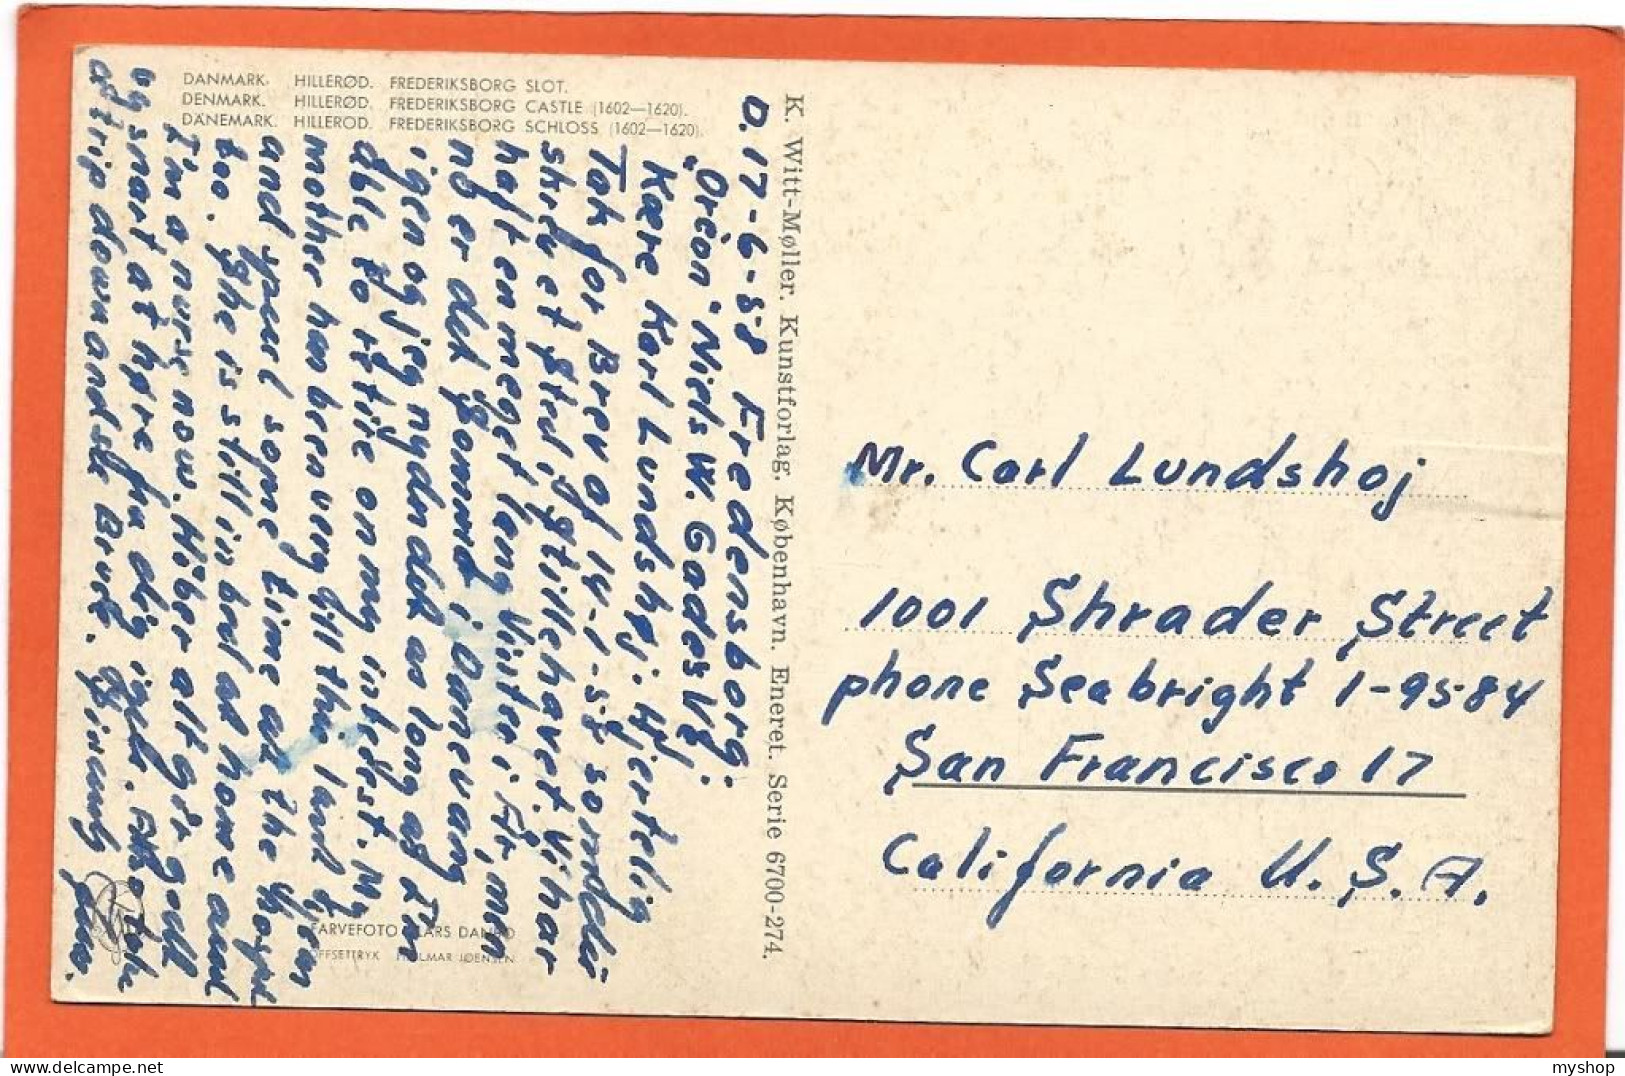 DANMARK. HILLERØD. FREDERIKSBORG SLOT.
DENMARK. HILLERØD. FREDERIKSBORG CASTLE (1602—1620).
DÄNEMARK. HILLEROD. FREDERIKSBORG SCHLOSS (1602—1620).
D. 17-6-58 Fredensborg.
"Orion" Niels W. Gadesvej.
Kære Karl Lundshøj. Hjertelig
Tak for Brev af 14-1-58 som du
skrev et sted, i Stillehavet. Vi har
haft en meget lang Vinter i År, men
nå er det Sommer i Danevang
igen og jeg nyder det as long as I'm
able to retire on my indest. My
mother has been very ill this last year
and spent some time at the hospital
too. She is still in bed at home and
I'm a nurse now. Håber alt går godt
og snart at høre fra dig igen. Tak
a trip down and sk Brevk. Sincerely yours.
FARVEFOTO LARS DANBO
OFFSETTRYK HJALMAR JOENSEN
K. Witt-Møller. Kunstforlag. København. Eneret. Serie 6700-274.
Mr. Carl Lundshoj
1001 Shrader Street
phone Seabright 1-9584
San Francisco 17
California U. S. A.
myshop